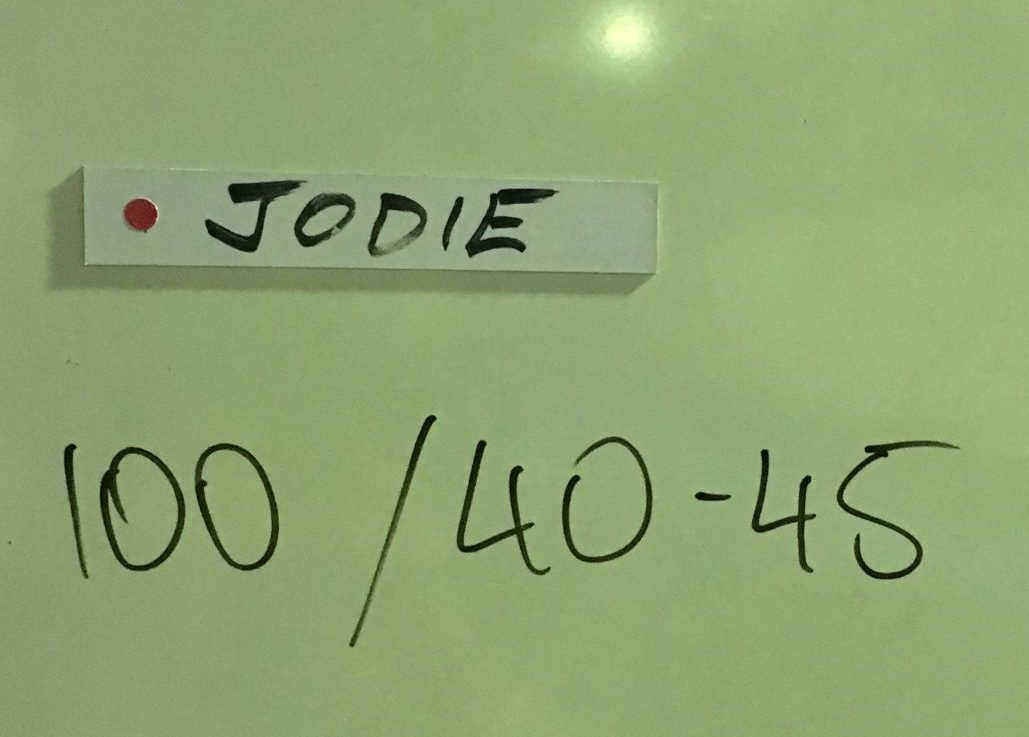 JODIE
100 / 40 - 45